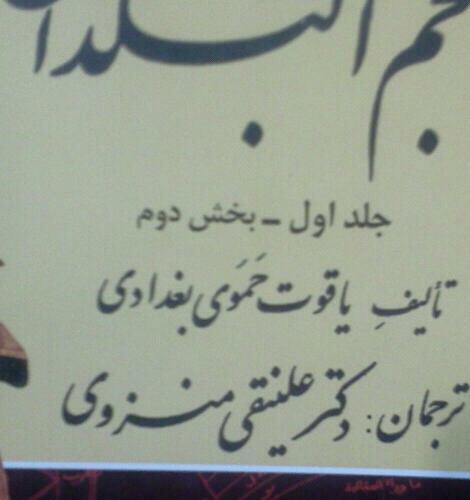 جم البلدان
جلد اول - بخش دوم
تألیفِ یاقوت حَمَوی بغدادی
ترجمان: دکتر علینقی منزوی